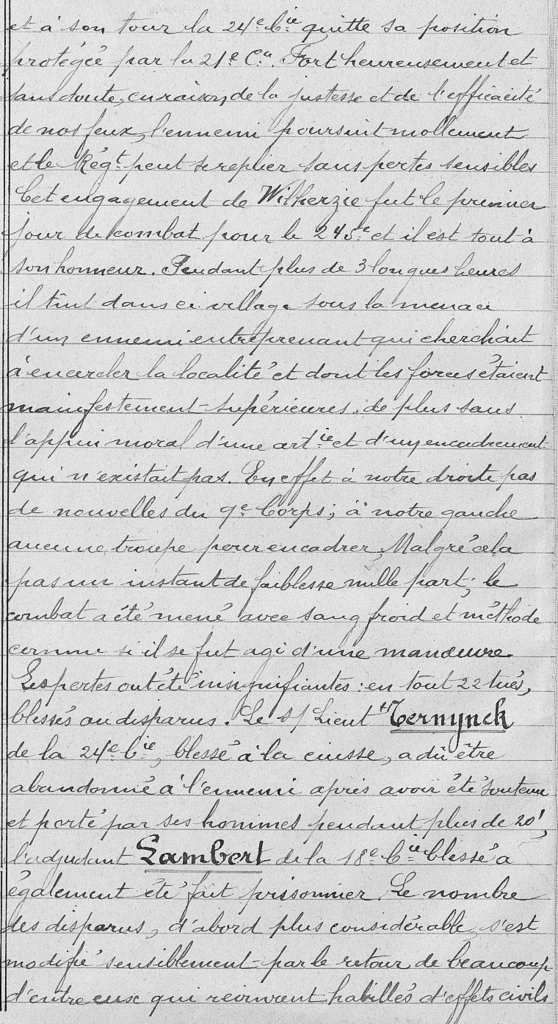 et à son tour la 24e Cie quitte sa position
protégée par la 21e Cie. Fort heureusement et
sans doute, en raison, de la justesse et de l'efficacité
de nos feux, l'ennemi poursuit mollement
et le Régt peut se replier sans pertes sensibles
Cet engagement de Wilherzie fut le premier
jour de combat pour le 245e et il est tout à
son honneur. Pendant plus de 3 longues heures
il tint dans ce village sous la menace
d'un ennemi entreprenant qui cherchait
à encercler la localité et dont les forces étaient
manifestement supérieures, de plus sans
l'appui moral d'une artie et d'un encadrement
qui n'existait pas. En effet à notre droite pas
de nouvelles du 9e Corps; à notre gauche
aucune troupe pour encadrer. Malgré cela
pas un instant de faiblesse nulle part; le
combat a été mené avec sang froid et méthode
comme si il se fut agi d'une manœuvre
Les pertes ont été insignifiantes: en tout 22 tués,
blessés ou disparus. Le s/Lieutt Ternynck
de la 24e Cie, blessé à la cuisse, a dû être
abandonné à l'ennemi après avoir été soutenu
et porté par ses hommes pendant plus de 20',
l'adjudant Lambert de la 18e Cie blessé a
également été fait prisonnier. Le nombre
des disparus, d'abord plus considérable, s'est
modifié sensiblement par le retour de beaucoup
d'entre eux qui revinrent habillés d'effets civils